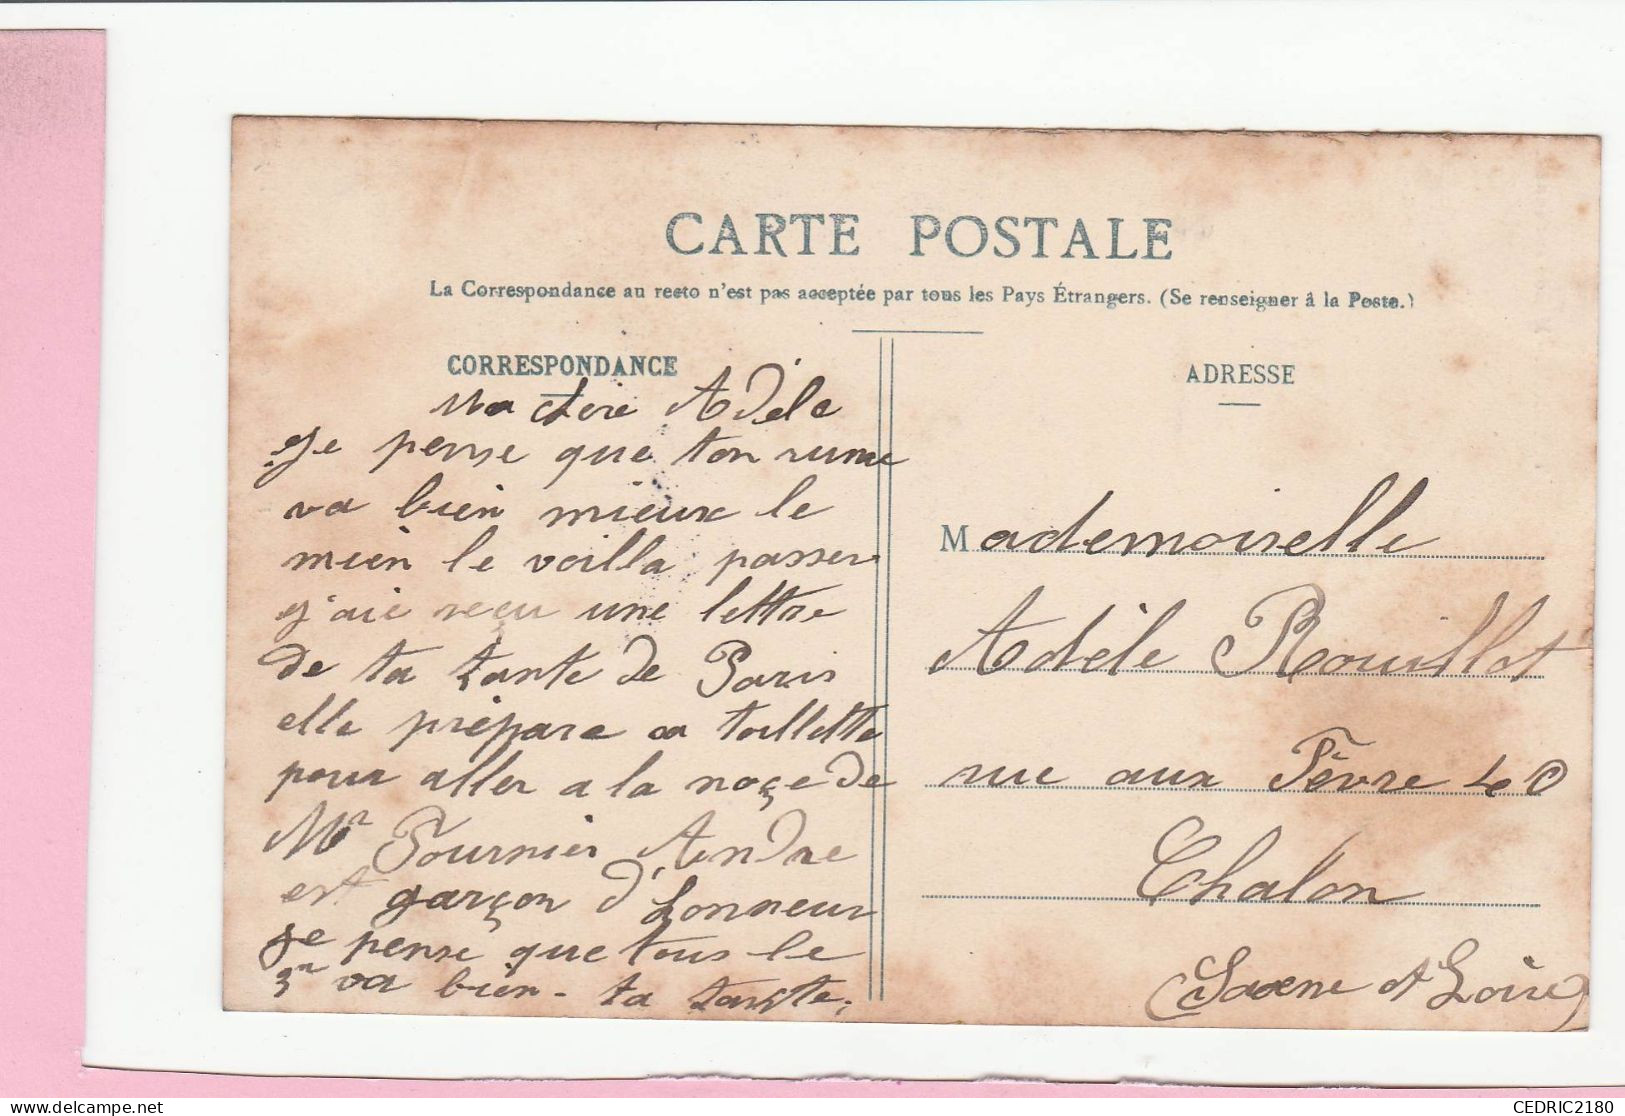 CARTE POSTALE
La Correspondance au recto n'est pas acceptée par tous les Pays Étrangers. (Se renseigner à la Poste.)
CORRESPONDANCE
Ma chere Adèle
Je pense que ton rume
va bien mieux le
mien le voilla passer
j'aie reçu une lettre
de ta tante de Paris
elle prépare sa toillette
pour aller a la noçe de
Mr Fournier Andre
est garçon d'honneur
je pense que tous le
va bien - ta tante.
ADRESSE
Mademoiselle
Adèle Rouillot
rue aux Fèvre 40
Chalon
(Saone et Loire)
CEDRIC2180